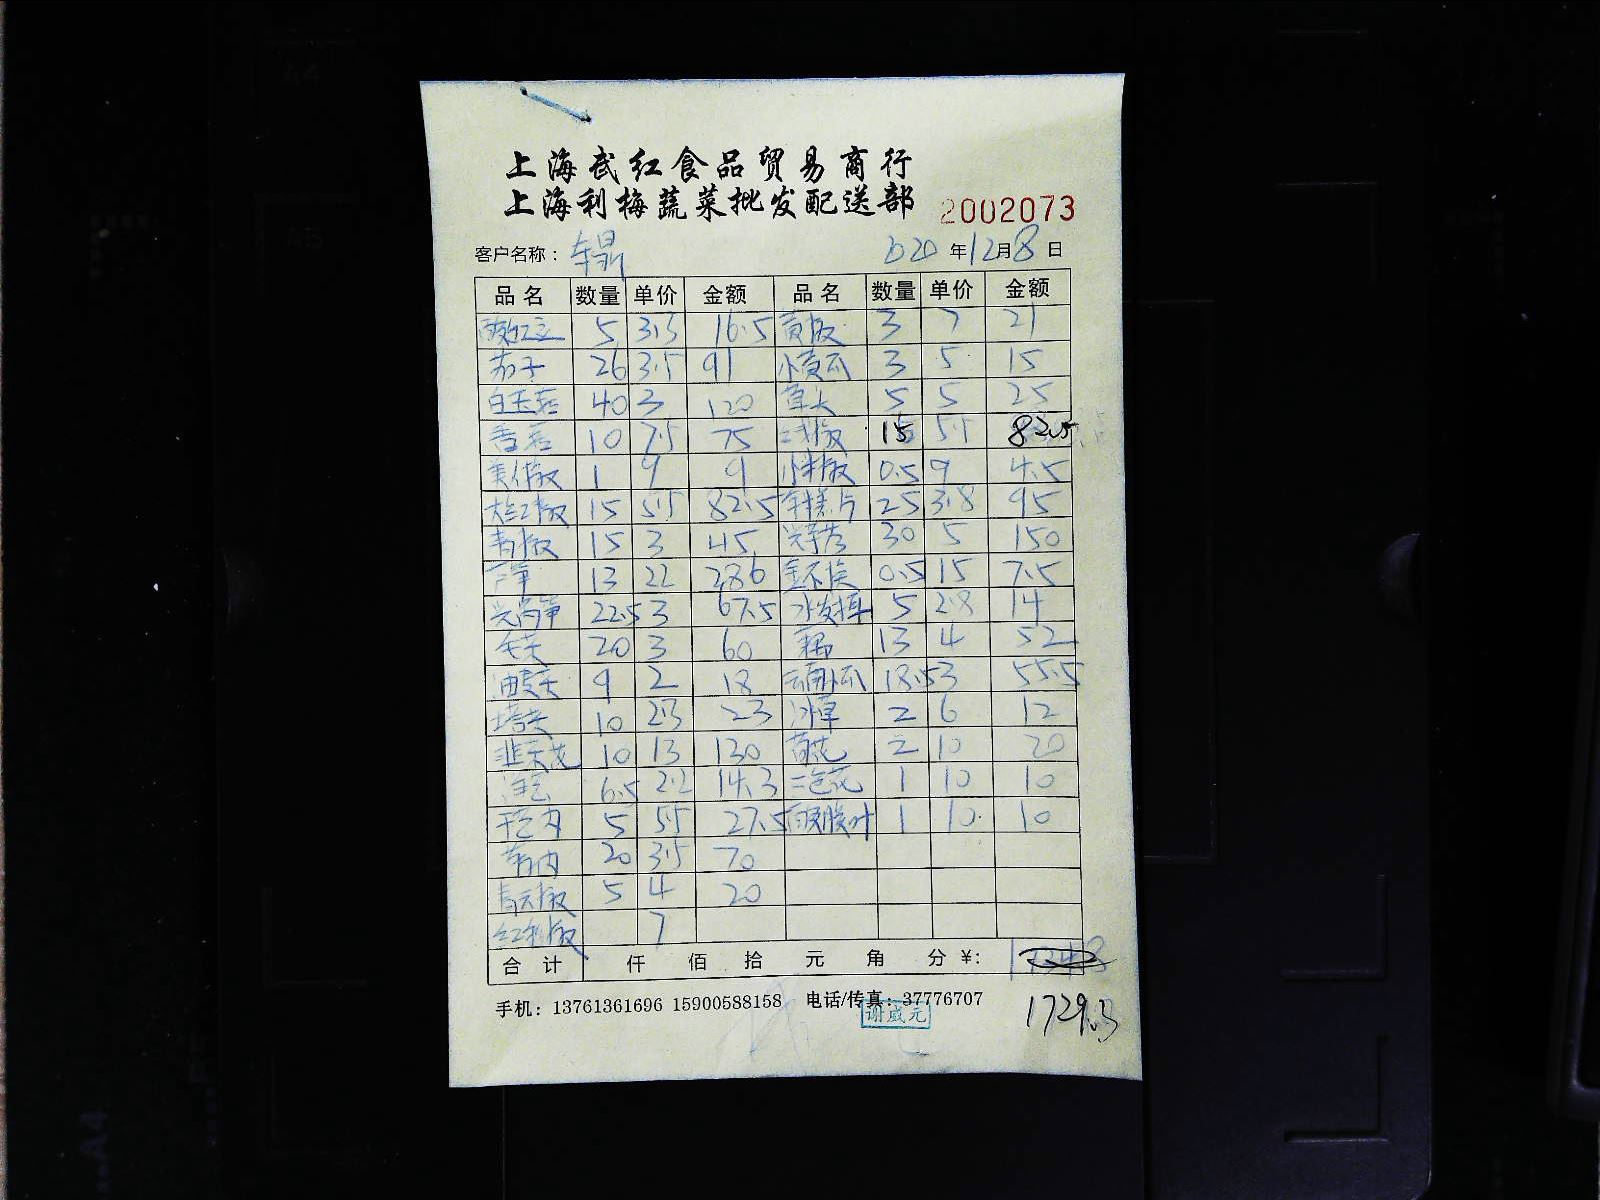 上海武红食品贸易商行
上海利梅蔬菜批发配送部 2002073
客户名称： 2020 年 12 月 8 日
品名 数量 单价 金额 品名 数量 单价 金额
5 3.3 16.5 黄椒 3 7 21
茄子 26 3.5 91 小黄瓜 3 5 15
白玉菇 40 3 120 草头 5 5 25
香菇 10 7.5 75 15 5.5 82.5
美人椒 1 9 9 小米椒 0.5 9 4.5
大红椒 15 5.5 82.5 年糕片 25 3.8 95
青椒 15 3 45 30 5 150
13 22 286 金不换 0.5 15 7.5
22.5 3 67.5 5 2.8 14
20 3 60 藕 13 4 52
油麦菜 9 2 18 云南小瓜 18.5 3 55.5
塔菜 10 2.3 23 冰草 2 6 12
韭菜花 10 13 130 2 10 20
洋芋 6.5 2.2 14.3 三色花 1 10 10
5 5.5 27.5 1 10 10
20 3.5 70
5 4 20
红尖椒 7
合计 仟 佰 拾 元 角 分 ¥:
手机：13761361696 15900588158 电话/传真：37776707 1729.3
谢盛元